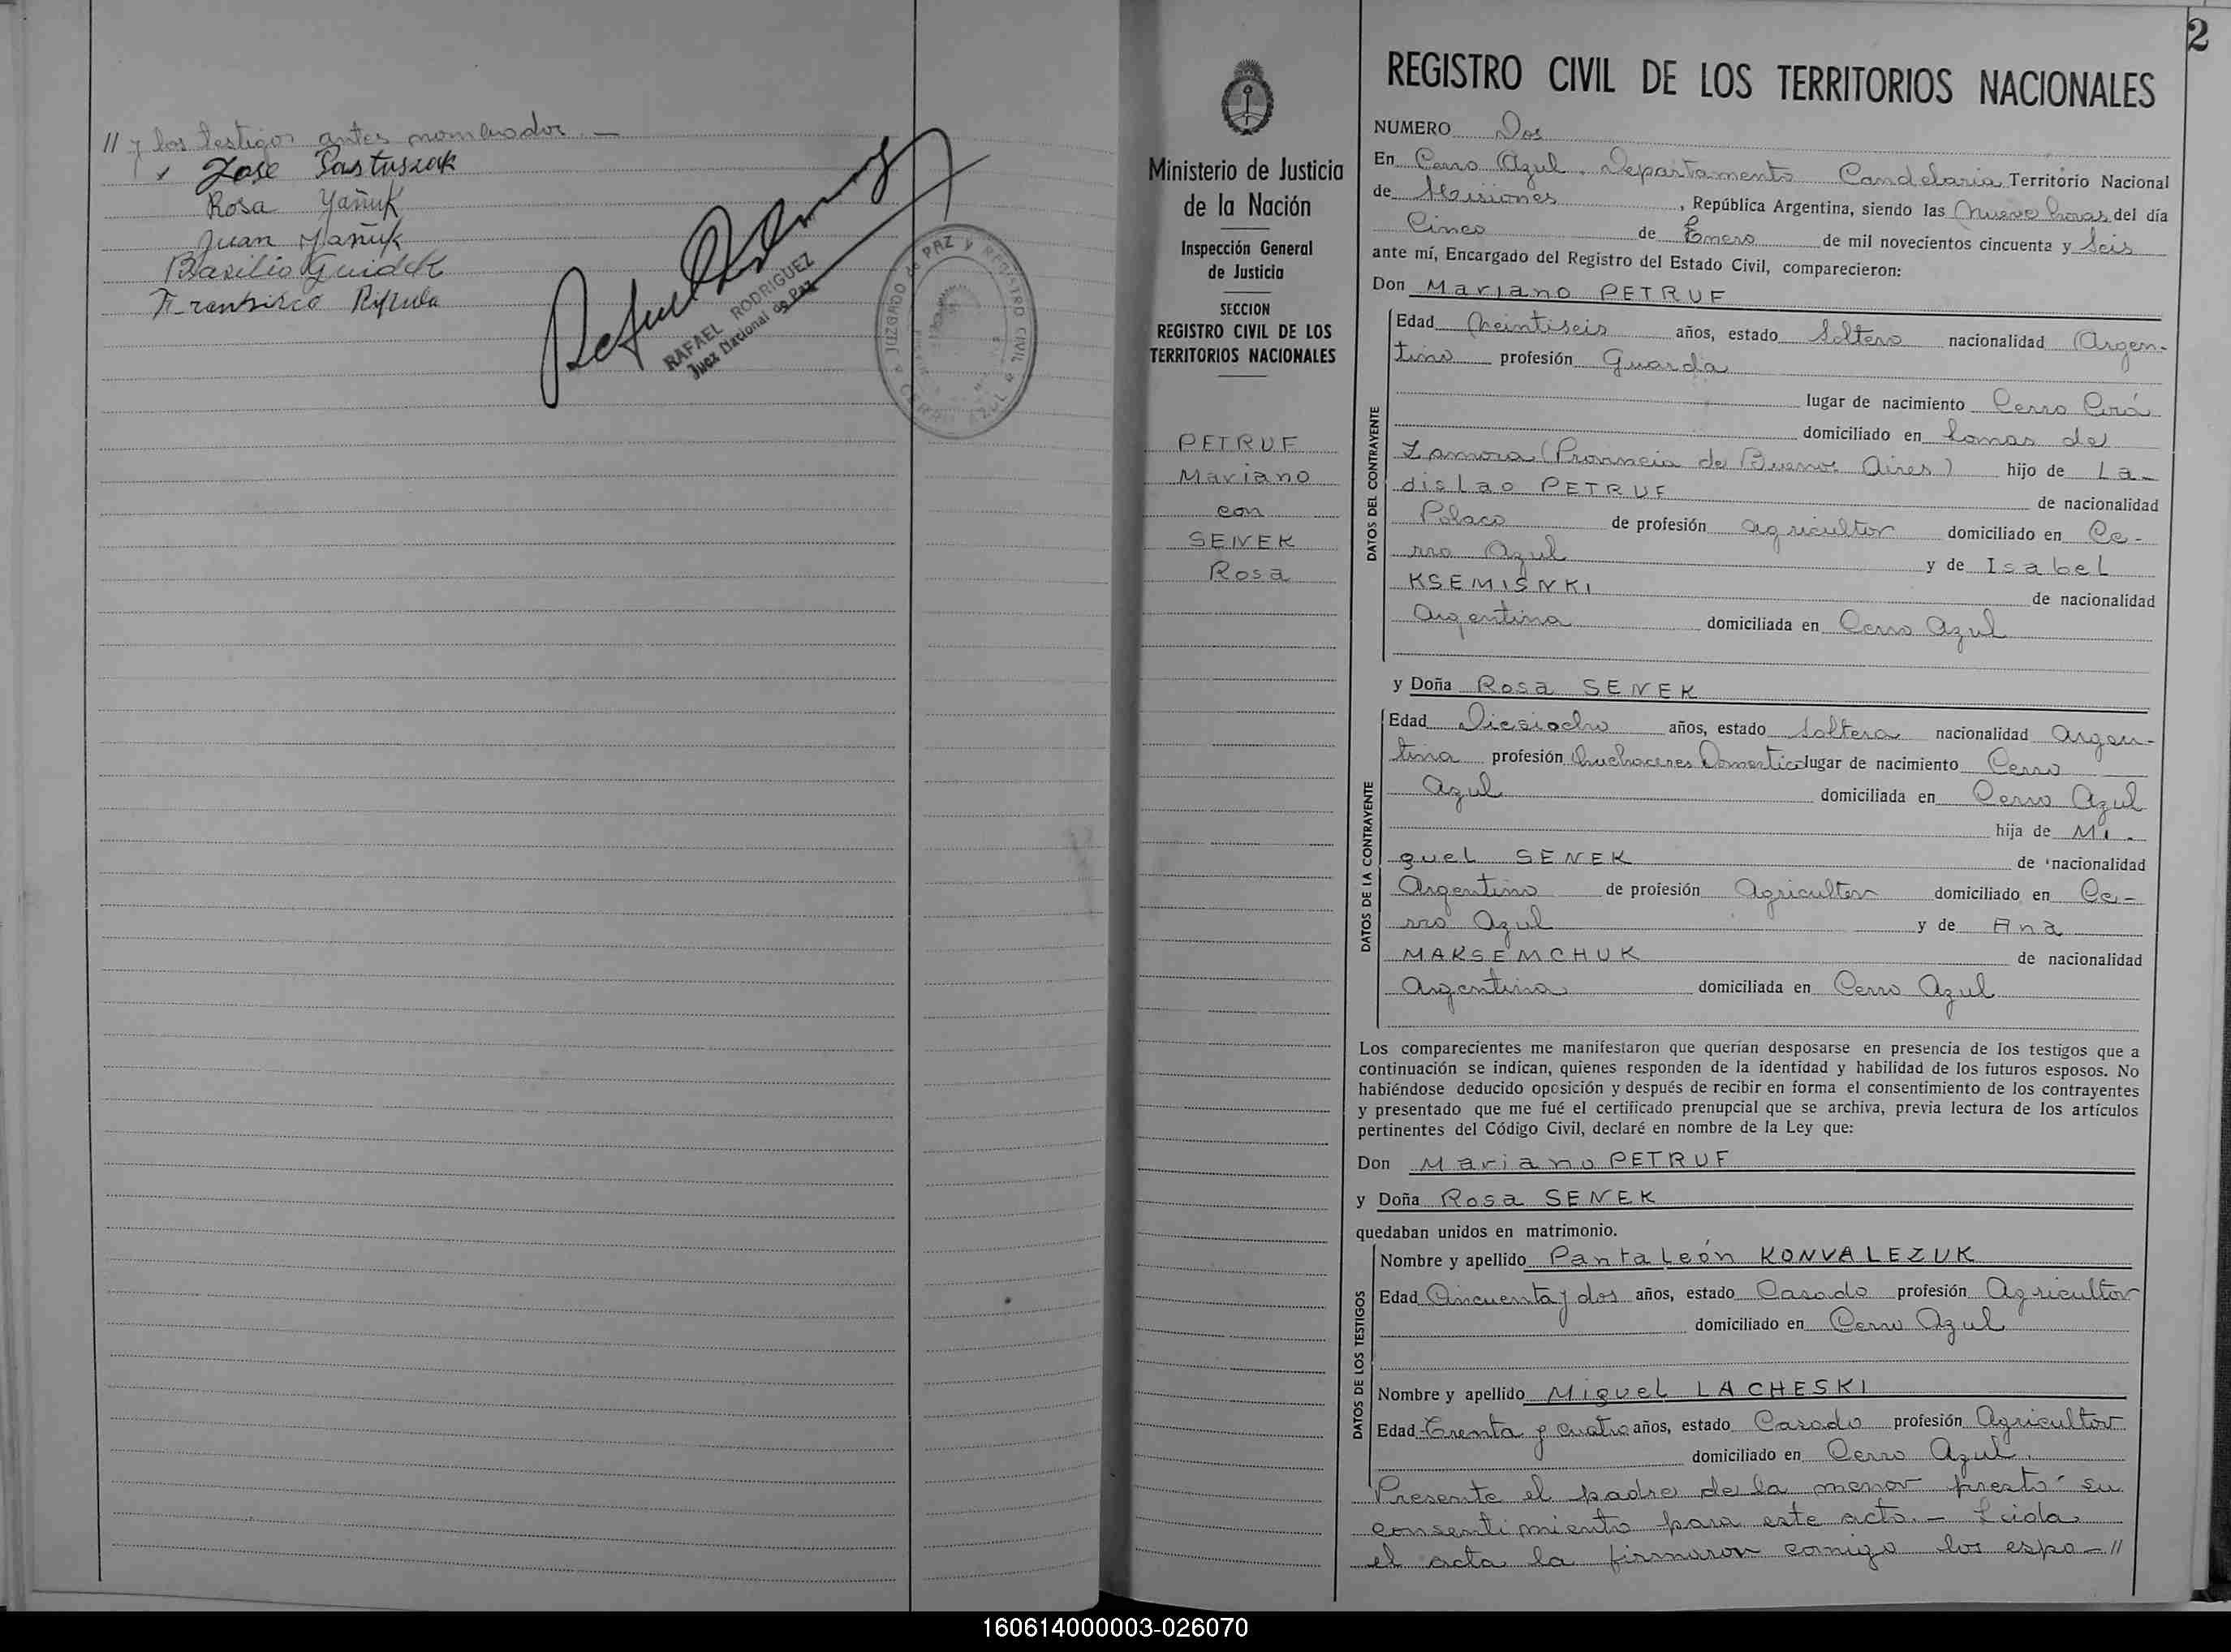 // y los testigos antes nombrados. —
Jose Pastuszak
Rosa Yañuk
Juan Yañuk
Basilio Guidek
RAFAEL RODRIGUEZ
Juez Nacional de Paz
JUZGADO de PAZ y REGISTRO CIVIL
2
Ministerio de Justicia
de la Nación
Inspección General
de Justicia
SECCION
REGISTRO CIVIL DE LOS
TERRITORIOS NACIONALES
PETRUF
Mariano
con
SENEK
Rosa
REGISTRO CIVIL DE LOS TERRITORIOS NACIONALES
NUMERO Dos
En Cerro Azul, Departamento Candelaria Territorio Nacional
de Misiones, República Argentina, siendo las nueve horas del día
Cinco de Enero de mil novecientos cincuenta y Seis
ante mí, Encargado del Registro del Estado Civil, comparecieron:
Don Mariano PETRUF
DATOS DEL CONTRAYENTE
Edad Veintiseis años, estado Soltero nacionalidad Argen-
tino profesión Guarda
lugar de nacimiento Cerro Corá
domiciliado en Lomas de
Zamora (Provincia de Buenos Aires) hijo de La-
dislao PETRUF de nacionalidad
Polaco de profesión agricultor domiciliado en Ce-
rro Azul y de Isabel
KSEMISNKI de nacionalidad
Argentina domiciliada en Cerro Azul
y Doña Rosa SENEK
DATOS DE LA CONTRAYENTE
Edad Dieciocho años, estado Soltera nacionalidad Argen-
tina profesión Quehaceres Domestico lugar de nacimiento Cerro
Azul domiciliada en Cerro Azul
hija de Mi-
guel SENEK de nacionalidad
Argentino de profesión Agricultor domiciliado en Ce-
rro Azul y de Ana
MAKSEMCHUK de nacionalidad
Argentina domiciliada en Cerro Azul
Los comparecientes me manifestaron que querían desposarse en presencia de los testigos que a
continuación se indican, quienes responden de la identidad y habilidad de los futuros esposos. No
habiéndose deducido oposición y después de recibir en forma el consentimiento de los contrayentes
y presentado que me fué el certificado prenupcial que se archiva, previa lectura de los artículos
pertinentes del Código Civil, declaré en nombre de la Ley que:
Don Mariano PETRUF
y Doña Rosa SENEK
quedaban unidos en matrimonio.
DATOS DE LOS TESTIGOS
Nombre y apellido Pantaleón KONVALEZUK
Edad Cincuenta y dos años, estado Casado profesión Agricultor
domiciliado en Cerro Azul
Nombre y apellido Miguel LACHESKI
Edad Trenta y cuatro años, estado Casado profesión Agricultor
domiciliado en Cerro Azul.
Presente el padre de la menor prestó su
consentimiento para este acto. — Leida
el acta la firmaron comigo los espo-//
160614000003-026070